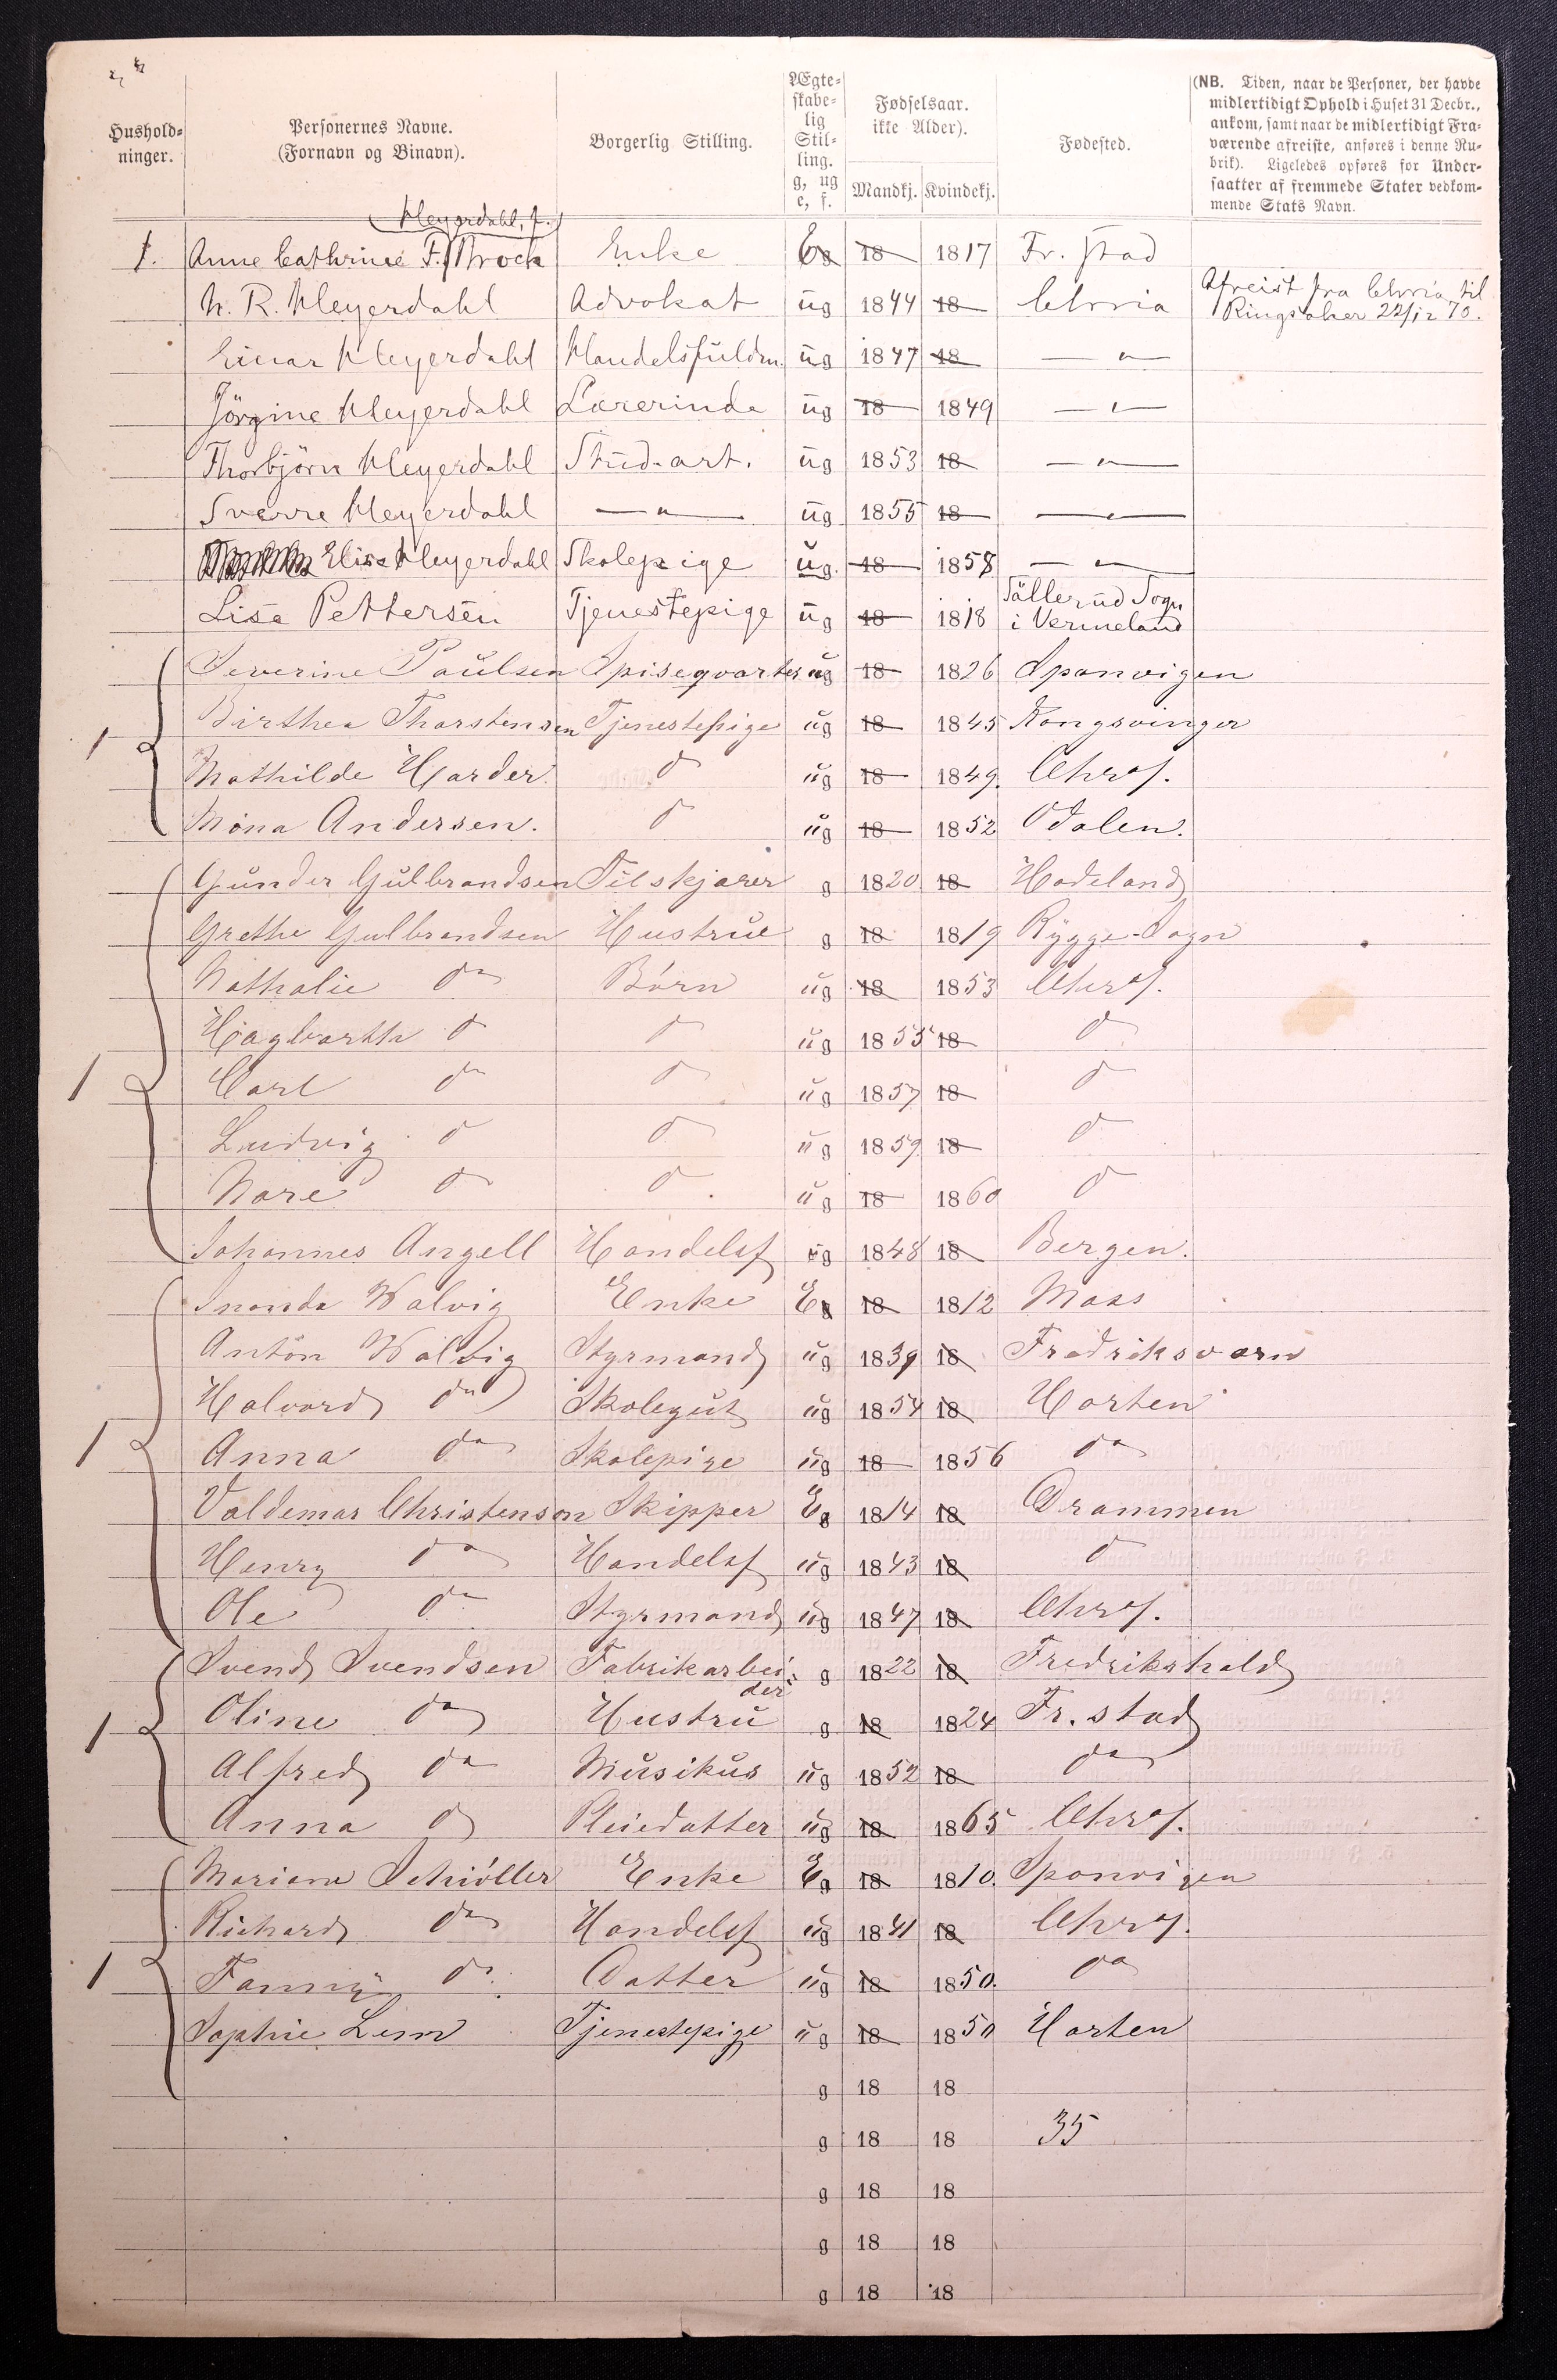 Hushold-
ninger.
Personernes Navne.
(Fornavn og Binavn).
Borgerlig Stilling.
Ægte-
skabe-
lig
Stil-
ling.
g, ug
e, f.
Fødselsaar.
ikke Alder).
Mandkj. Kvindekj.
Fødested.
(NB. Tiden, naar de Personer, der havde
midlertidigt Ophold i Huset 31 Decbr.,
ankom, samt naar de midlertidigt Fra-
værende afreiste, anføres i denne Ru-
brik). Ligeledes opføres for Under-
saatter af fremmede Stater vedkom-
mende Stats Navn.
(Heyerdahl, f.)
1. Anne Cathrine F. Brock Enke E 18 1817 Fr. stad
Afreist fra Chria til
H. R. Heyerdahl Advokat ug 1844 18 Chria Ringsaker 22/12 70.
Einar Heyerdahl Handelsfuldm. ug 1847 18 — " —
Jörgine Heyerdahl Lærerinde ug 18 1849 — " —
Thorbjörn Heyerdahl Stud. art. ug 1853 18 — " —
Sverre Heyerdahl — " — ug 1855 18 — " —
Elise Heyerdahl Skolepige ug. 18 1858 — " —
Lisa Pettersen Tjenestepige ug 18 1818 Tällerud Sogn
i Vermeland
Severine Paulsen Spiseqvarter ug 18 1826 Sponvigen
1 Birthea Thorstensen Tjenestepige ug 18 1845 Kongsvinger
Mathilde Harder. do ug 18 1849. Chra.
Mona Andersen. do ug 18 1852 Odalen.
Gunder Gulbrandsen Tilskjærer g 1820 18 Hadeland
Grethe Gulbrandsen Hustrue g 18 1819 Rygge Sogn
Nathalie do Børn ug 18 1853 Chra.
Hagbarth do do ug 1855 18 do
1 Carl do do ug 1857 18 do
Ludvig do do ug 1859 18 do
Nare do do ug 18 1860 do
Johannes Angell Handelsf ug 1848 18 Bergen.
Walvig Enke E 18 1812 Moss
Anton Walvig Styrmand ug 1839 18 Fredriksværn
Halvord do Skolegut ug 1854 18 Horten
1 Anna do Skolepige ug 18 1856 do
Valdemar Christenson Skipper E 1814 18 Drammen
Henry do Handelsf ug 1843 18 do
Ole do Styrmand ug 1847 18 Chra.
Svend Svendsen Fabrikarbei- g 1822 18 Fredrikshald
der
1 Oline do Hustru g 18 1824 Fr. stad
Alfred do Musikus ug 1852 18 do
Anna do Pleiedatter ug 18 1865 Chra.
Mariane Schiøller Enke E 18 1810. Sponvigen
Richard do Handelsf ug 1841 18 Chra.
1 Fanny do. Datter ug 18 1850. do
Sophie Lem Tjenestepige ug 18 1850 Horten
g 18 18
g 18 18 35
g 18 18
g 18 18
g 18 18